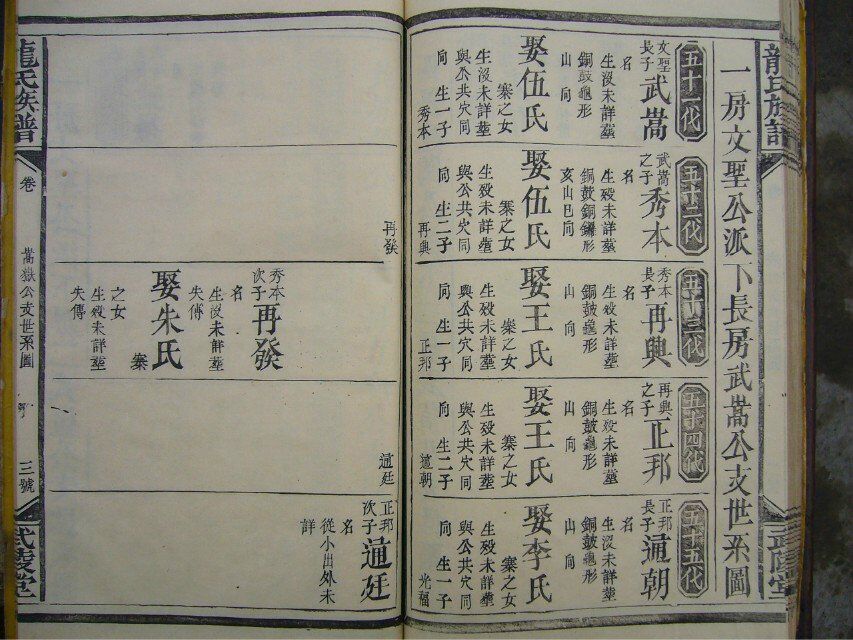 龍氏族譜
武陵堂
一房文聖公派下長房武嵩公支世系圖
五十一代
文聖長子武嵩
名
生沒未詳塟
銅鼓龜形
山向
娶伍氏
寨之女
生沒未詳塟
與公共穴同
向生一子
秀本
五十二代
武嵩之子秀本
名
生歿未詳塟
銅鼓銅鑼形
亥山巳向
娶伍氏
寨之女
生歿未詳塟
與公共穴同
向生二子
再興
再發
五十三代
秀本長子再興
名
生沒未詳塟
銅鼓龜形
山向
娶王氏
寨之女
生歿未詳塟
與公共穴同
向生一子
正邦
秀本次子再發
名
生沒未詳塟
失傳
娶朱氏
寨
之女
生歿未詳塟
失傳
五十四代
再興之子正邦
名
生歿未詳塟
銅鼓龜形
山向
娶王氏
寨之女
生歿未詳塟
與公共穴同
向生二子
通朝
通廷
五十五代
正邦長子通朝
名
生沒未詳塟
銅鼓龜形
山向
娶李氏
寨之女
生歿未詳塟
與公共穴同
向生一子
光福
正邦次子通廷
名
從小出外未
詳
龍氏族譜
卷
嵩嶽公支世系圖
三號
武陵堂